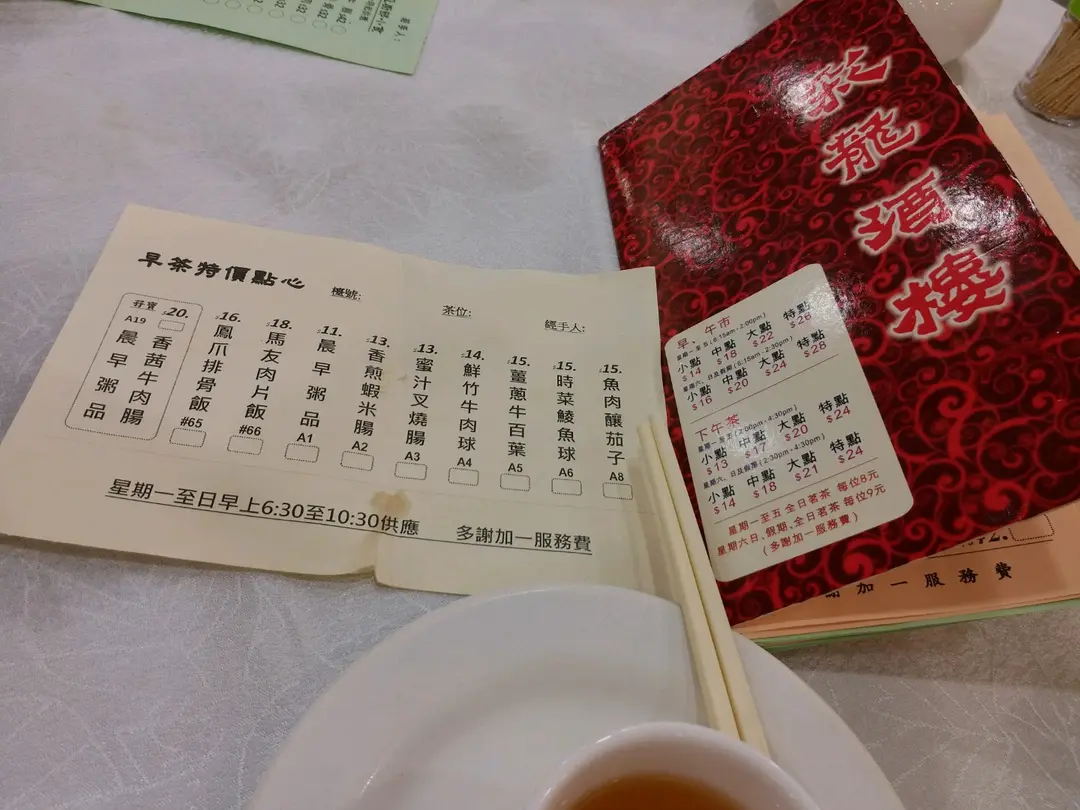 經手人:
早茶特價點心
檯號:
茶位:
經手人:
尋寶 $20.
A19
香茜牛肉腸
晨早粥品
$16.
鳳爪排骨飯
#65
$18.
馬友肉片飯
#66
$11.
晨早粥品
A1
$13.
香煎蝦米腸
A2
$13.
蜜汁叉燒腸
A3
$14.
鮮竹牛肉球
A4
$15.
薑蔥牛百葉
A5
$15.
時菜鯪魚球
A6
$15.
魚肉釀茄子
A8
星期一至日早上6:30至10:30供應
多謝加一服務費
龍酒樓
早、午市
星期一至五 (6:15am - 2:00pm)
小點 中點 大點 特點
$14 $18 $22 $28
星期六、日及假期 (6:15am - 2:30pm)
小點 中點 大點 特點
$16 $20 $24 $28
下午茶
星期一至五 (2:00pm - 4:30pm)
小點 中點 大點 特點
$13 $17 $20 $24
星期六、日及假期 (2:30pm - 4:30pm)
小點 中點 大點 特點
$14 $18 $21 $24
星期一至五 全日茗茶 每位8元
星期六日、假期, 全日茗茶 每位9元
(多謝加一服務費)
謝加一服務費